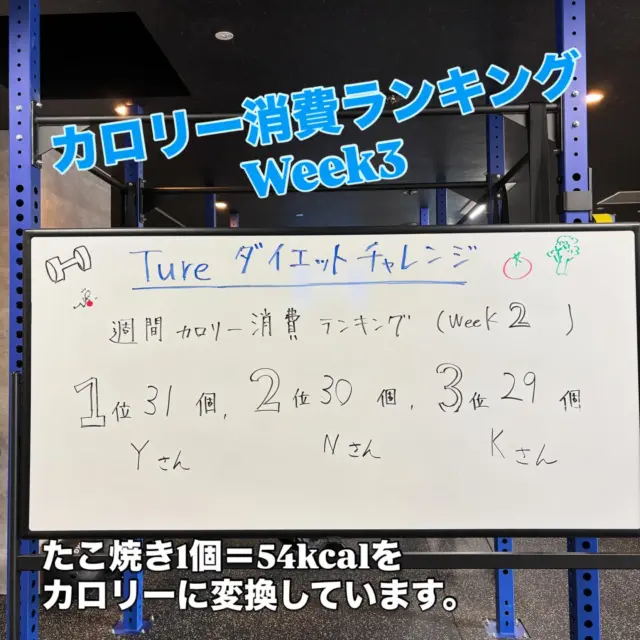 カロリー消費ランキング
Week3
Ture ダイエットチャレンジ
週間 カロリー消費 ランキング (Week 2 )
1位 31個, 2位 30個, 3位 29個
Yさん Nさん Kさん
たこ焼き1個＝54kcalを
カロリーに変換しています。